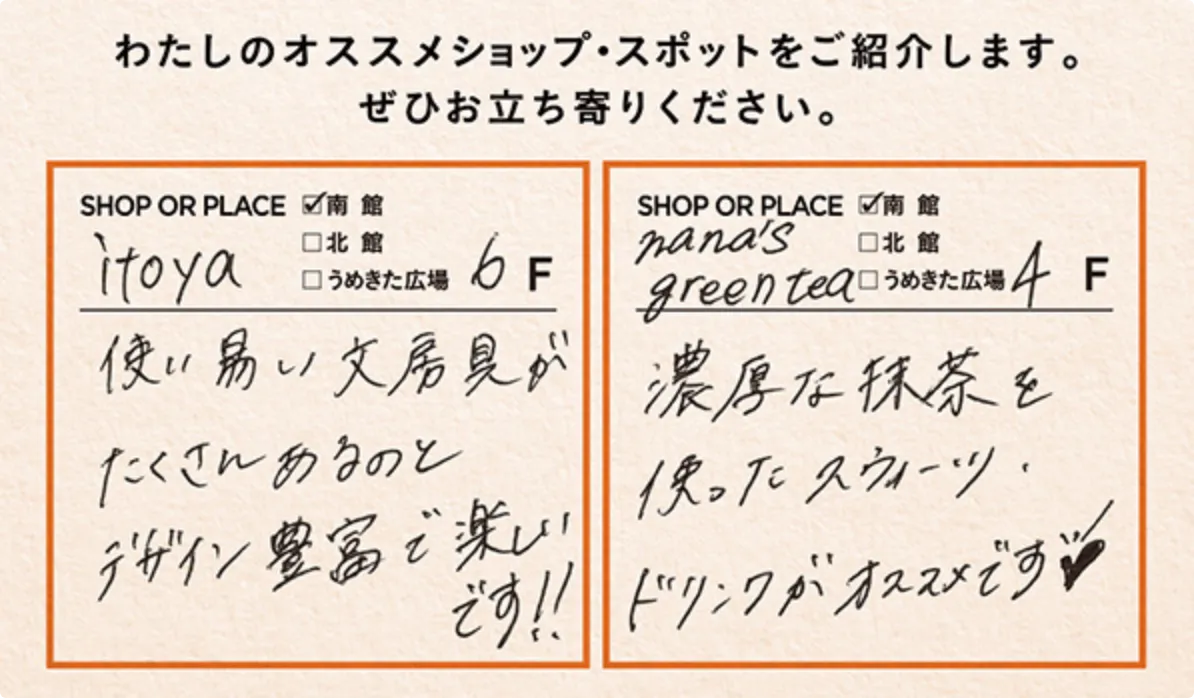 わたしのオススメショップ・スポットをご紹介します。
ぜひお立ち寄りください。
SHOP OR PLACE ☑南 館
□北 館
itoya □うめきた広場 6 F
使い易い文房具が
たくさんあるのと
デザイン豊富で楽しい
です!!
SHOP OR PLACE ☑南 館
nana's □北 館
green tea □うめきた広場 4 F
濃厚な抹茶を
使ったスウィーツ・
ドリンクがオススメです♥